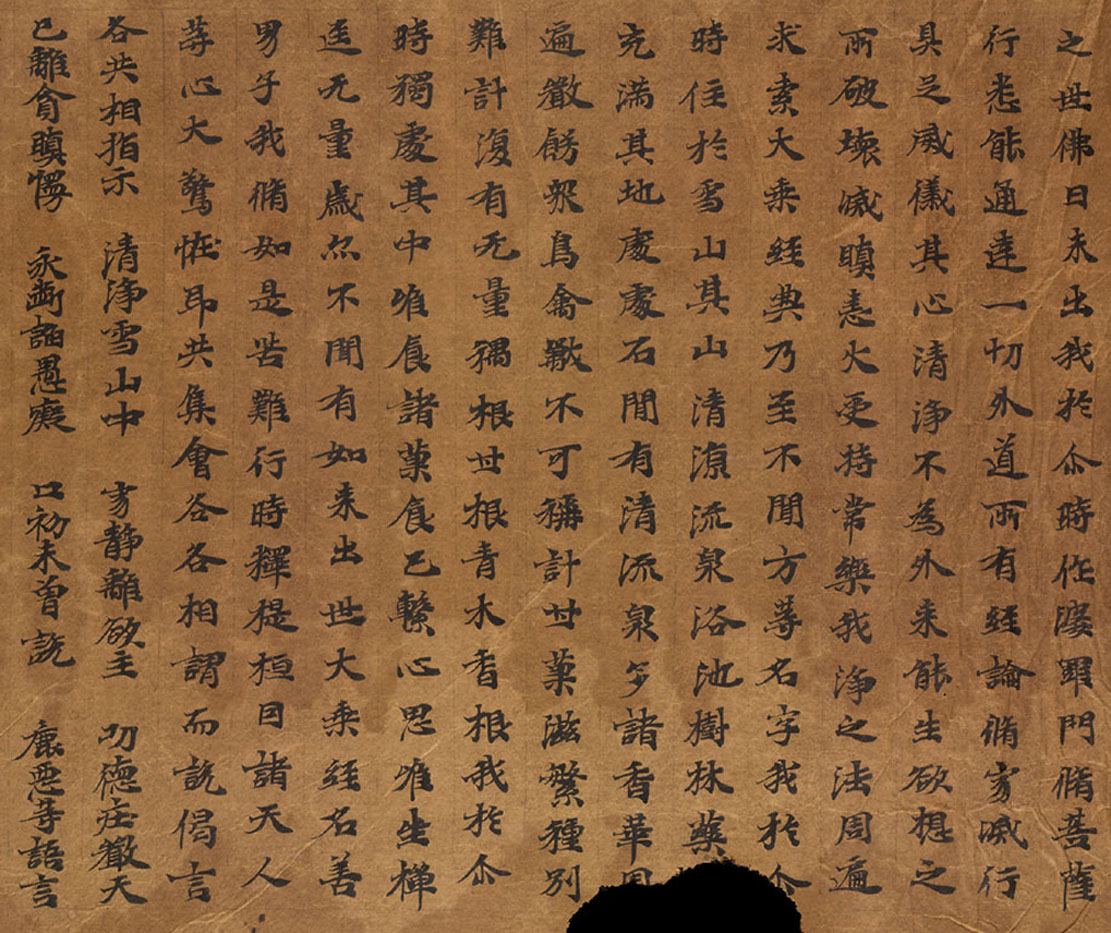 之世佛日未出我於尒時作婆羅門脩菩薩
行悉能通達一切外道所有經論脩寂滅行
具足威儀其心清淨不為外来能生欲想之
所破壞滅瞋恚火受持常樂我淨之法周遍
求索大乘經典乃至不聞方等名字我於尒
時住於雪山其山清涼流泉浴池樹林藥
充滿其地處處石間有清流泉多諸香華周
遍嚴餝眾鳥禽獸不可稱計甘菓滋繁種別
難計復有无量藕根甘根青木香根我於尒
時獨處其中唯食諸菓食已繫心思惟坐禪
逕无量歲忽不聞有如来出世大乘經名善
男子我脩如是苦難行時釋提桓因諸天人
等心大驚恠即共集會各各相謂而說偈言
各共相指示 清淨雪山中 寂靜離欲主 功德莊嚴天
已離貪瞋慢 永斷諂愚癡 口初未曾說 麁惡等語言